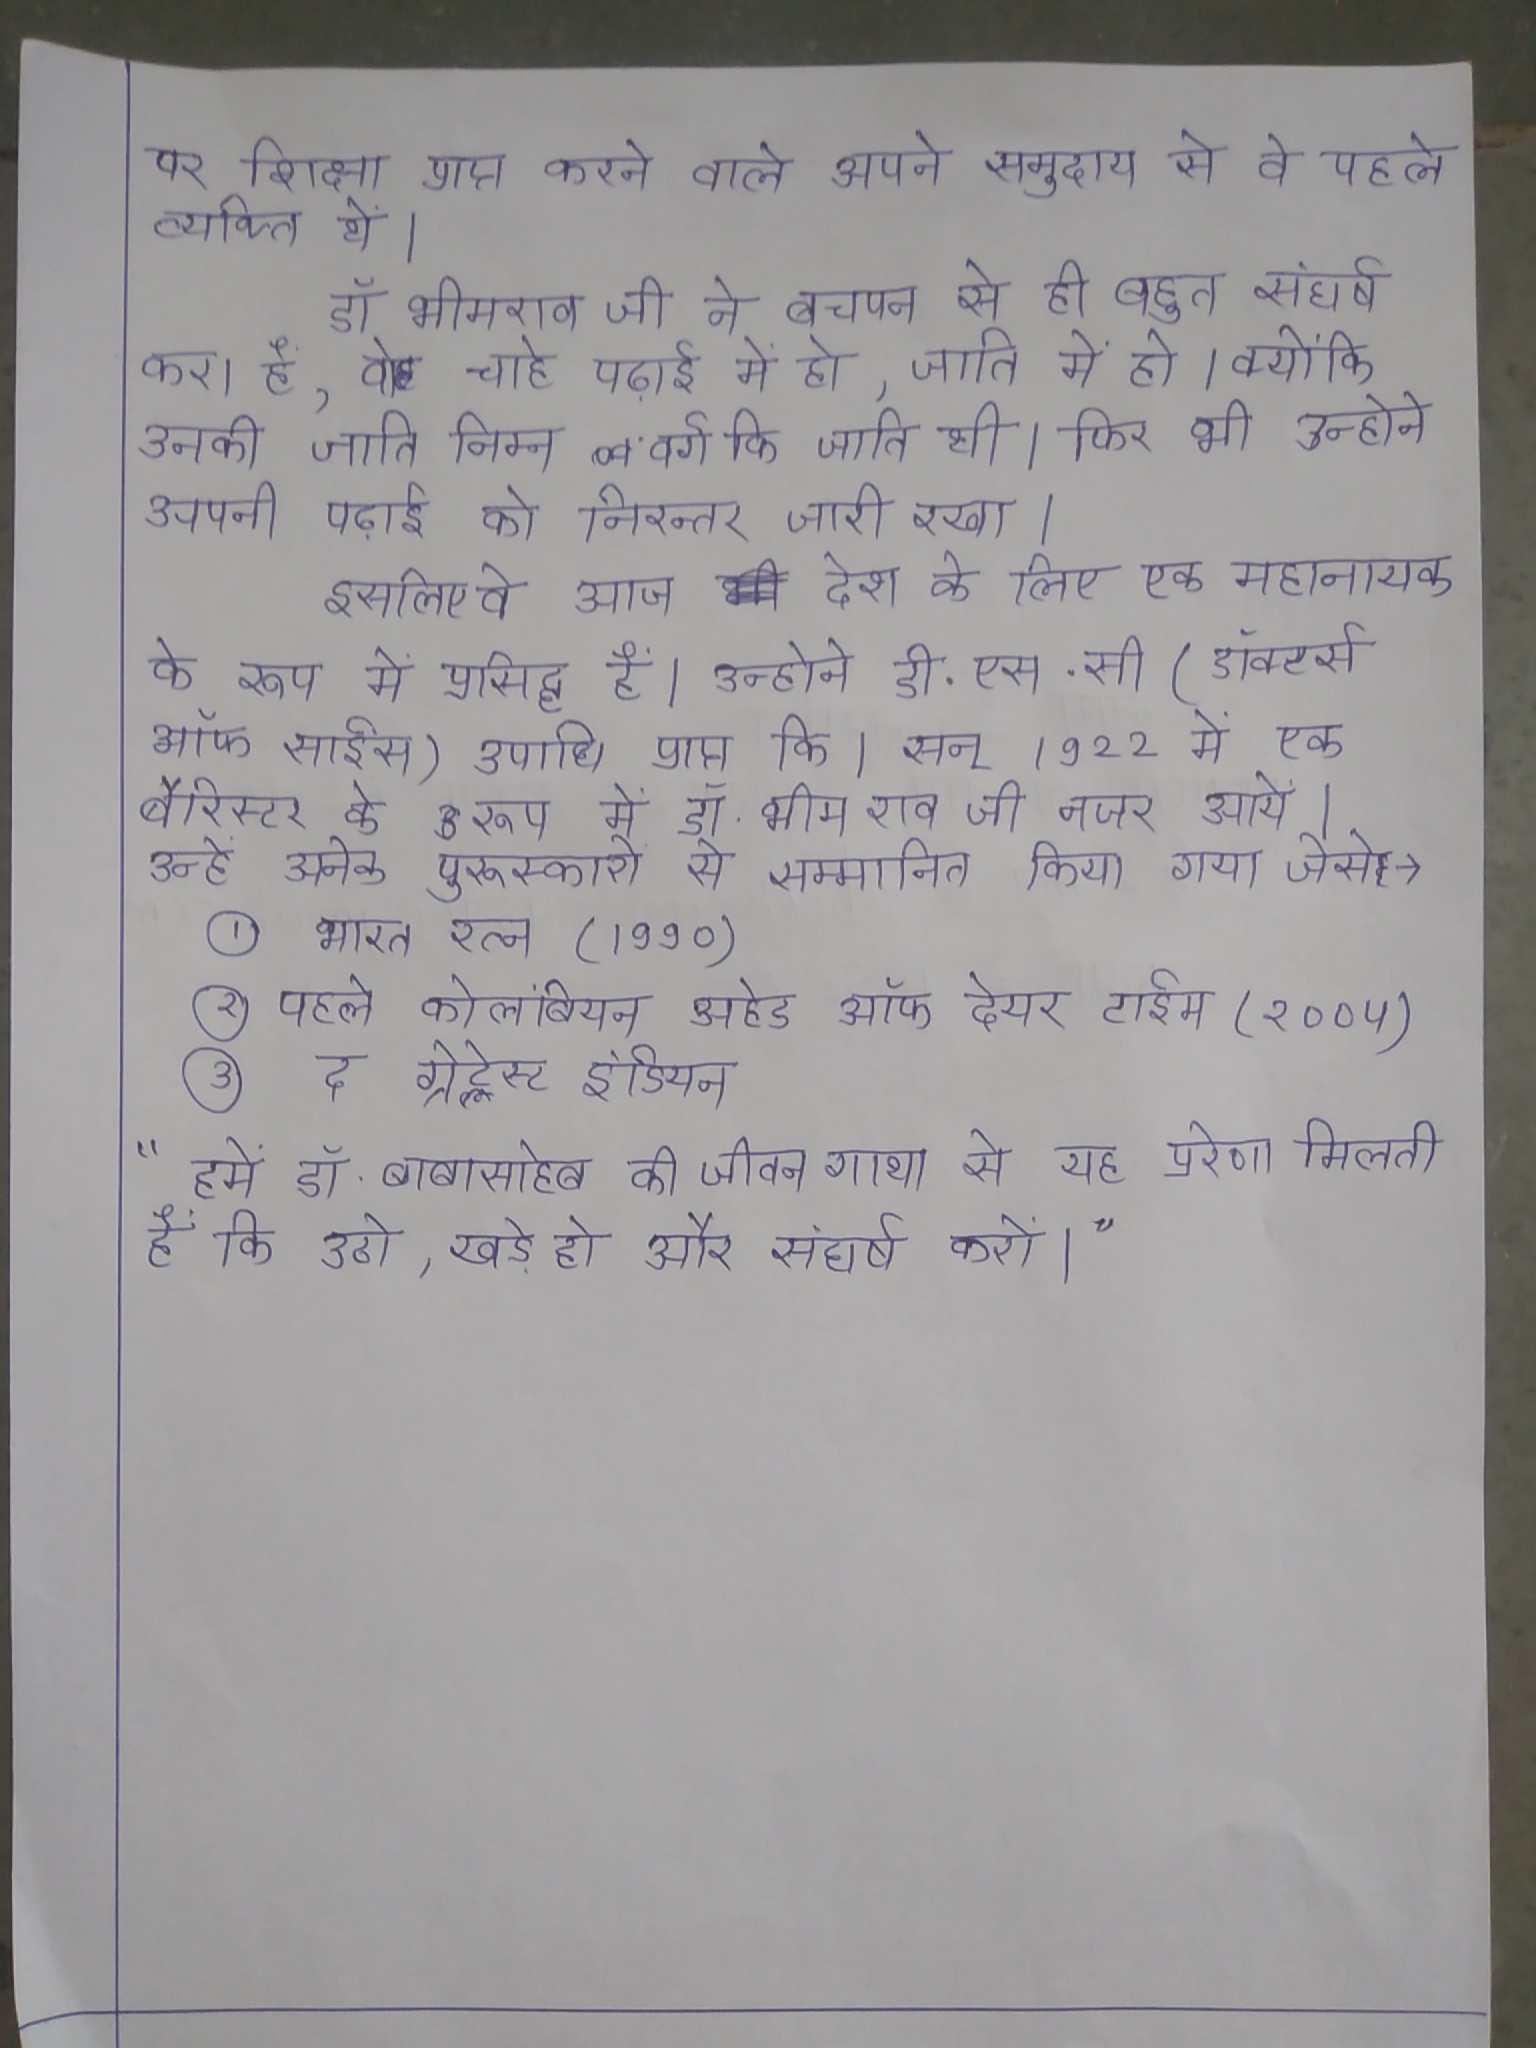 पर शिक्षा प्राप्त करने वाले अपने समुदाय से वे पहले
व्यक्ति थें।
डॉ भीमराव जी ने बचपन से ही बहुत संघर्ष
करा हैं, वोह चाहे पढ़ाई में हो, जाति में हो। क्योंकि
उनकी जाति निम्न वर्ग कि जाति थी। फिर भी उन्होने
अपनी पढ़ाई को निरन्तर जारी रखा।
इसलिए वे आज देश के लिए एक महानायक
के रूप में प्रसिद्ध हैं। उन्होने डी. एस. सी (डॉक्टर्स
ऑफ साईंस) उपाधि प्राप्त कि। सन् 1922 में एक
बैरिस्टर के रूप में डॉ. भीम राव जी नजर आयें।
उन्हें अनेक पुरूस्कारों से सम्मानित किया गया जैसेः→
① भारत रत्न (1990)
② पहले कोलंबियन अहेड ऑफ देयर टाईम (2004)
③ द ग्रेटेस्ट इंडियन
"हमें डॉ. बाबासाहेब की जीवन गाथा से यह प्ररेणा मिलती
हैं कि उठो, खड़े हो और संघर्ष करों।"